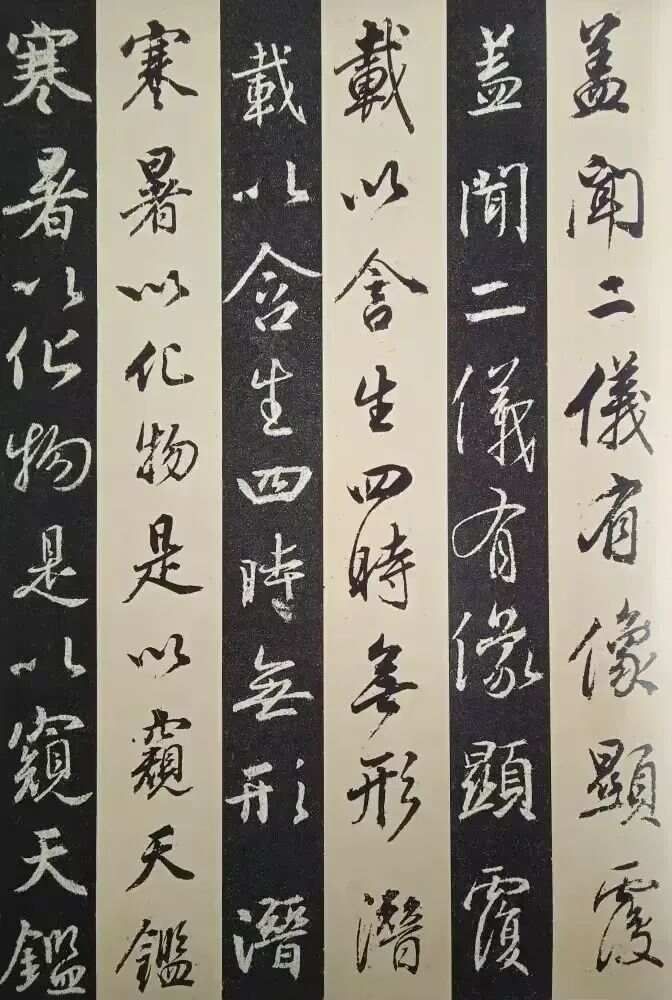 盖聞二儀有像顯覆
盖聞二儀有像顯覆
載以含生四時無形潛
載以含生四時無形潛
寒暑以化物是以窺天鑑
寒暑以化物是以窺天鑑